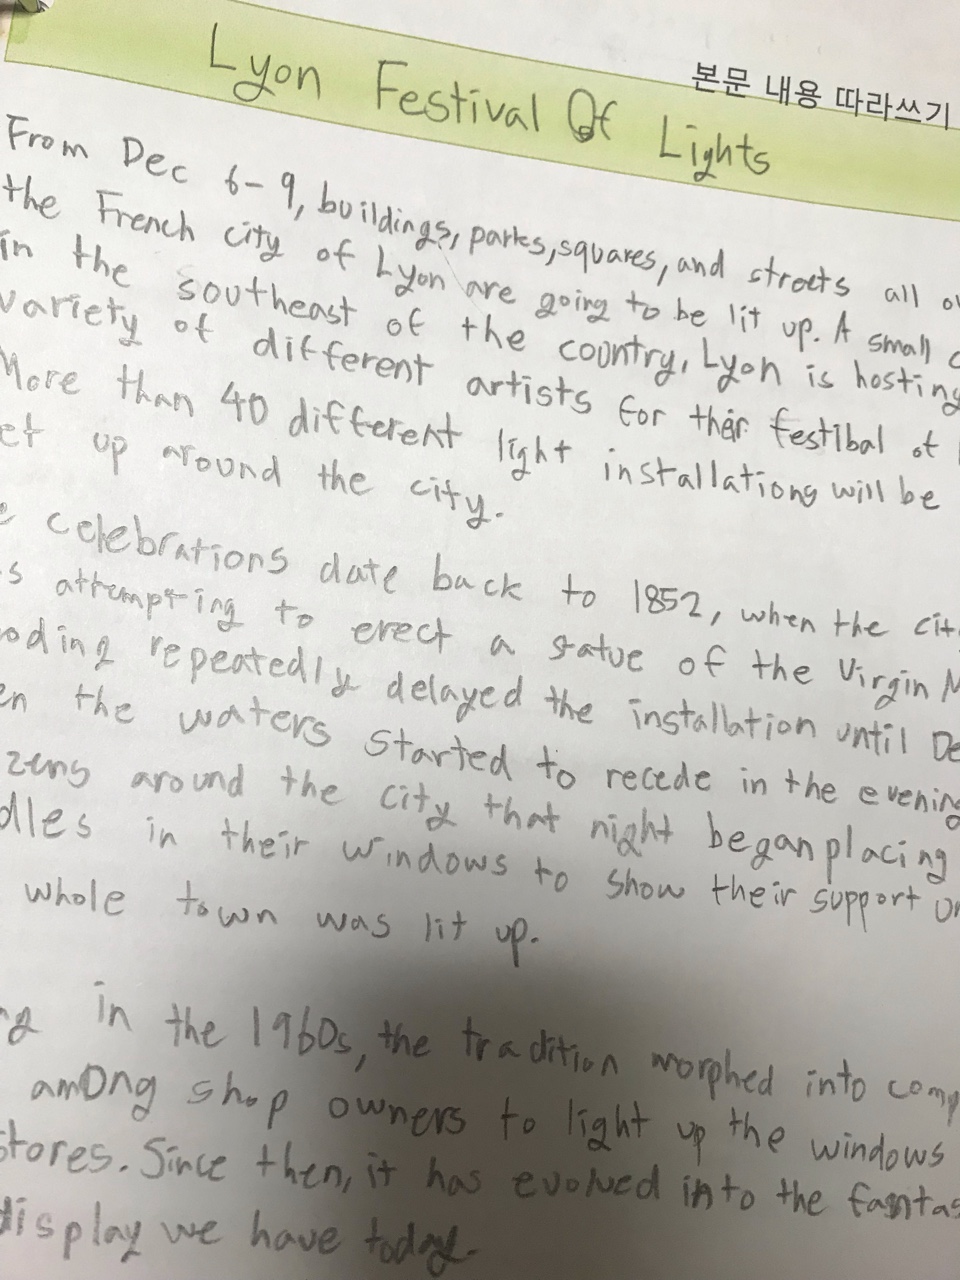 본문 내용 따라쓰기
Lyon Festival Of Lights
From Dec 6-9, buildings, parks, squares, and streets all
the French city of Lyon are going to be lit up. A small
in the southeast of the country, Lyon is hosting
variety of different artists for their festibal of
More than 40 different light installations will be
et up around the city.
celebrations date back to 1852, when the cit
s attempting to erect a statue of the Virgin M
oding repeatedly delayed the installation until De
en the waters started to recede in the evening
zens around the city that night began placing
dles in their windows to show their support
whole town was lit up.
ng in the 1960s, the tradition morphed into comp
among shop owners to light up the windows
stores. Since then, it has evolved into the fantas
display we have today.